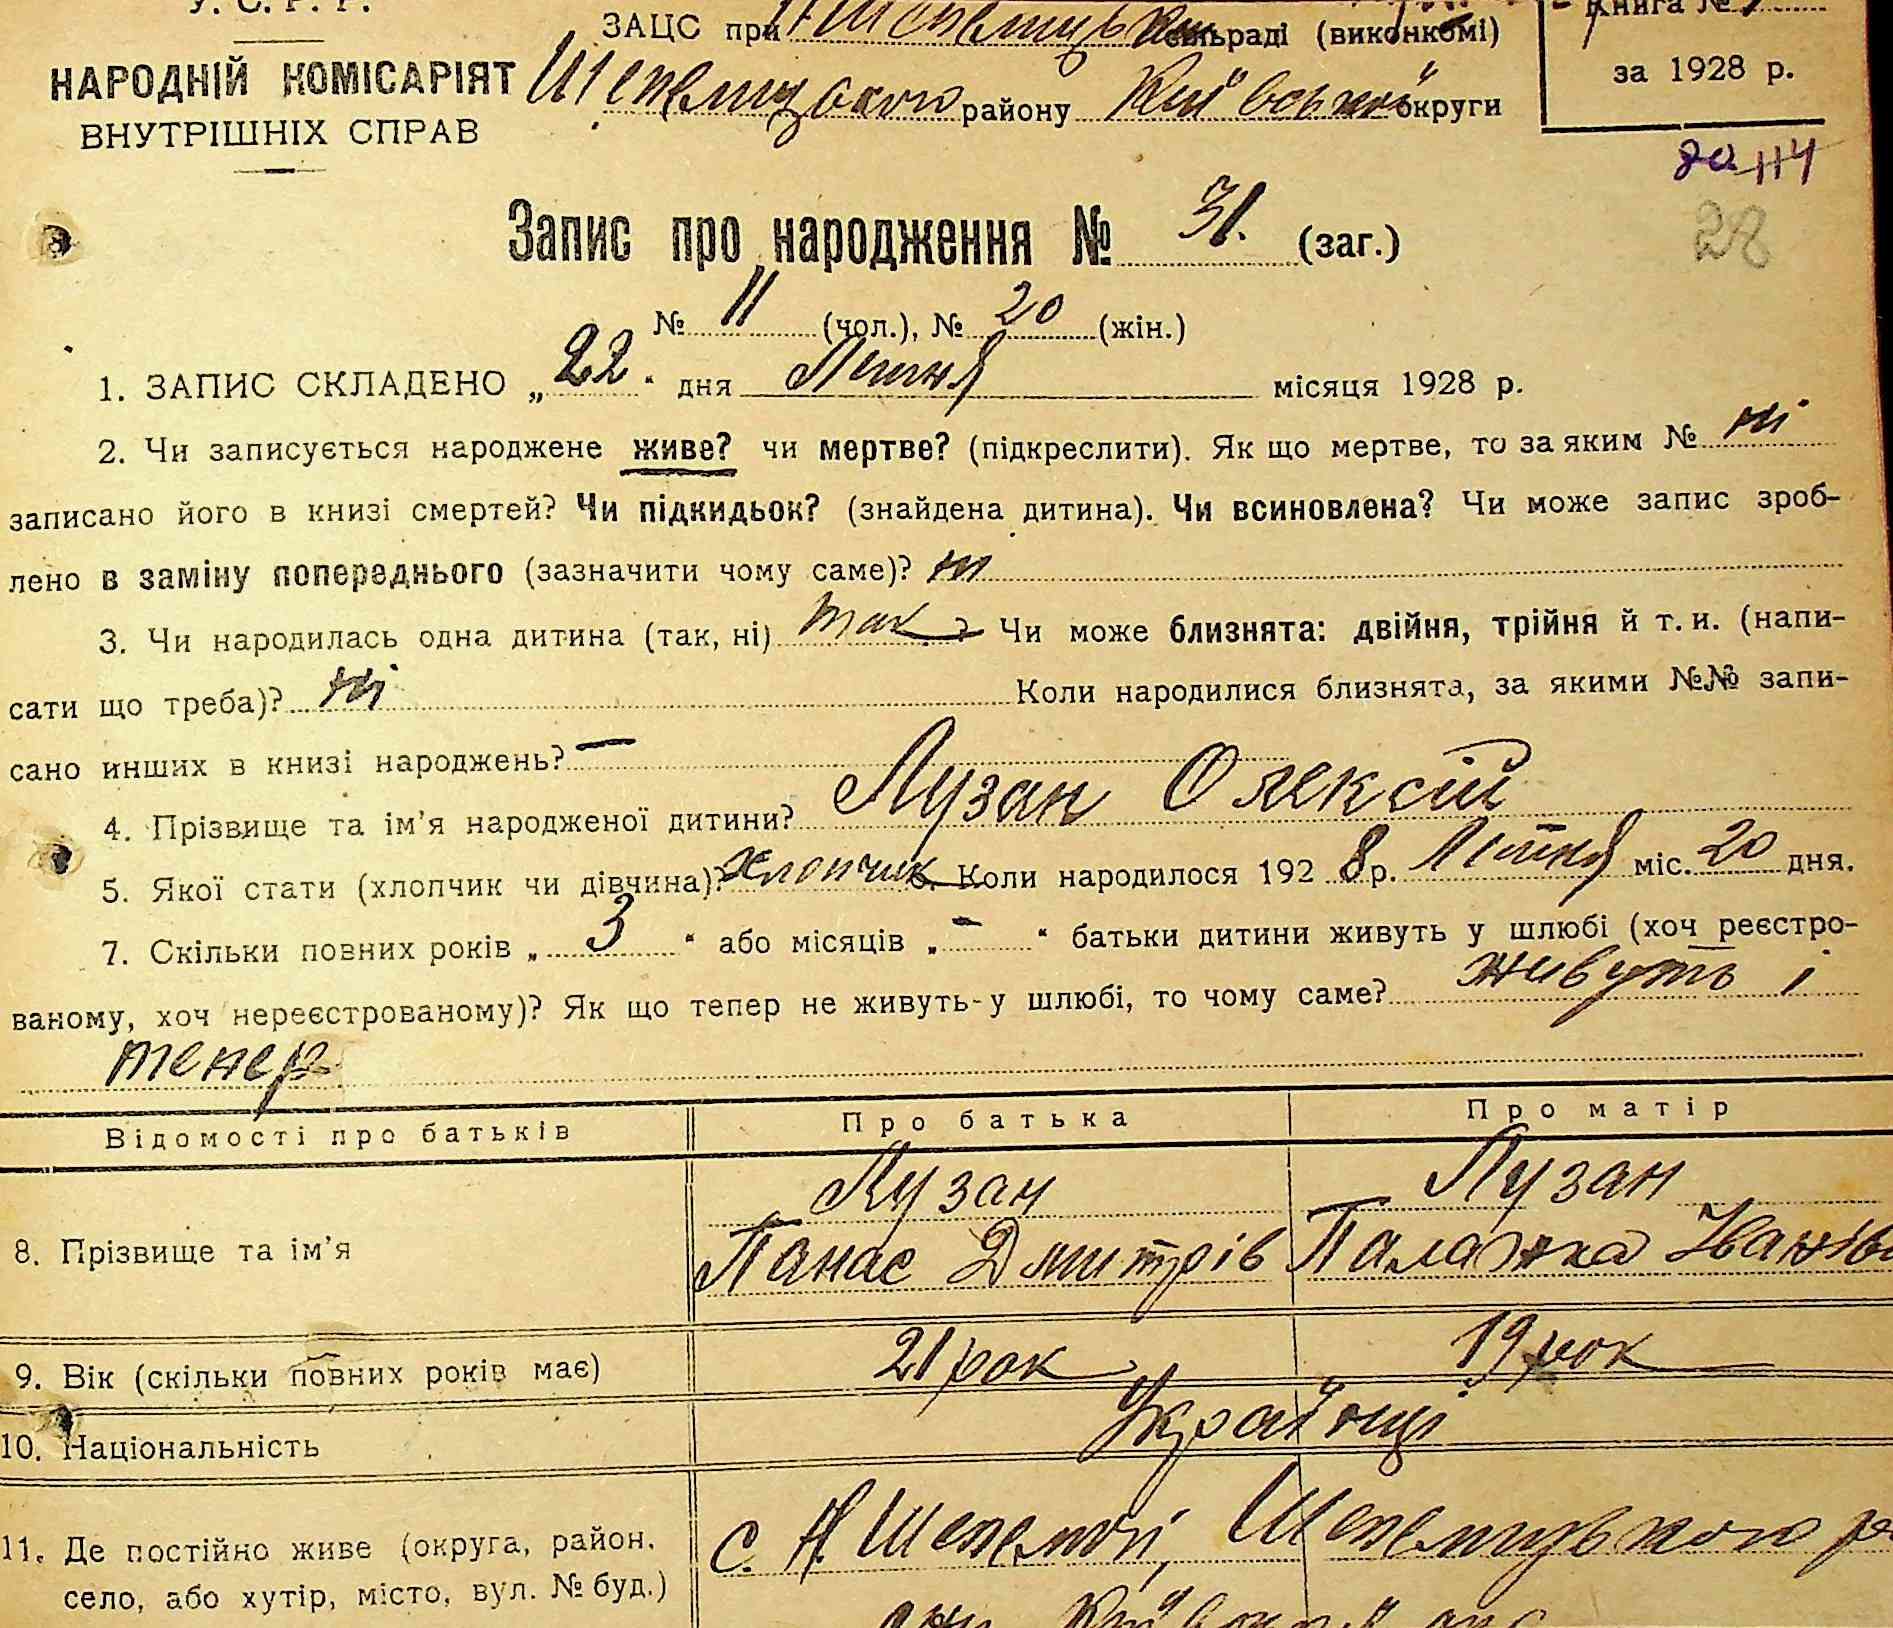 У. С. Р. Р.
ЗАЦС при Н Шепелицькій сільраді (виконкомі)
Книга №
НАРОДНІЙ КОМІСАРІЯТ
ВНУТРІШНІХ СПРАВ
Шепелицького району Київської округи
за 1928 р.
114
28
Запис про народження № 31. (заг.)
№ 11 (чол.), № 20 (жін.)
1. ЗАПИС СКЛАДЕНО „22“ дня Липня місяця 1928 р.
2. Чи записується народжене живе? чи мертве? (підкреслити). Як що мертве, то за яким № ні
записано його в книзі смертей? Чи підкидьок? (знайдена дитина). Чи всиновлена? Чи може запис зроб-
лено в заміну попереднього (зазначити чому саме)? ні
3. Чи народилась одна дитина (так, ні) так ? Чи може близнята: двійня, трійня й т. и. (напи-
сати що треба)? ні Коли народилися близнята, за якими №№ запи-
сано инших в книзі народжень? —
4. Прізвище та ім'я народженої дитини? Лузан Олексій
5. Якої стати (хлопчик чи дівчина)? хлопчик 6. Коли народилося 1928 р. Липня міс. 20 дня.
7. Скільки повних років „3“ або місяців „–“ батьки дитини живуть у шлюбі (хоч реєстро-
ваному, хоч нереєстрованому)? Як що тепер не живуть у шлюбі, то чому саме? живуть і
тепер
Відомості про батьків Про батька Про матір
8. Прізвище та ім'я
Лузан
Панас Дмитрів
Лузан
Палажка Іванівн
9. Вік (скільки повних років має) 21 рок 19 рок
10. Національність Українці
11. Де постійно живе (округа, район,
село, або хутір, місто, вул. № буд.)
с. Н. Шепеличі, Шепелицького р